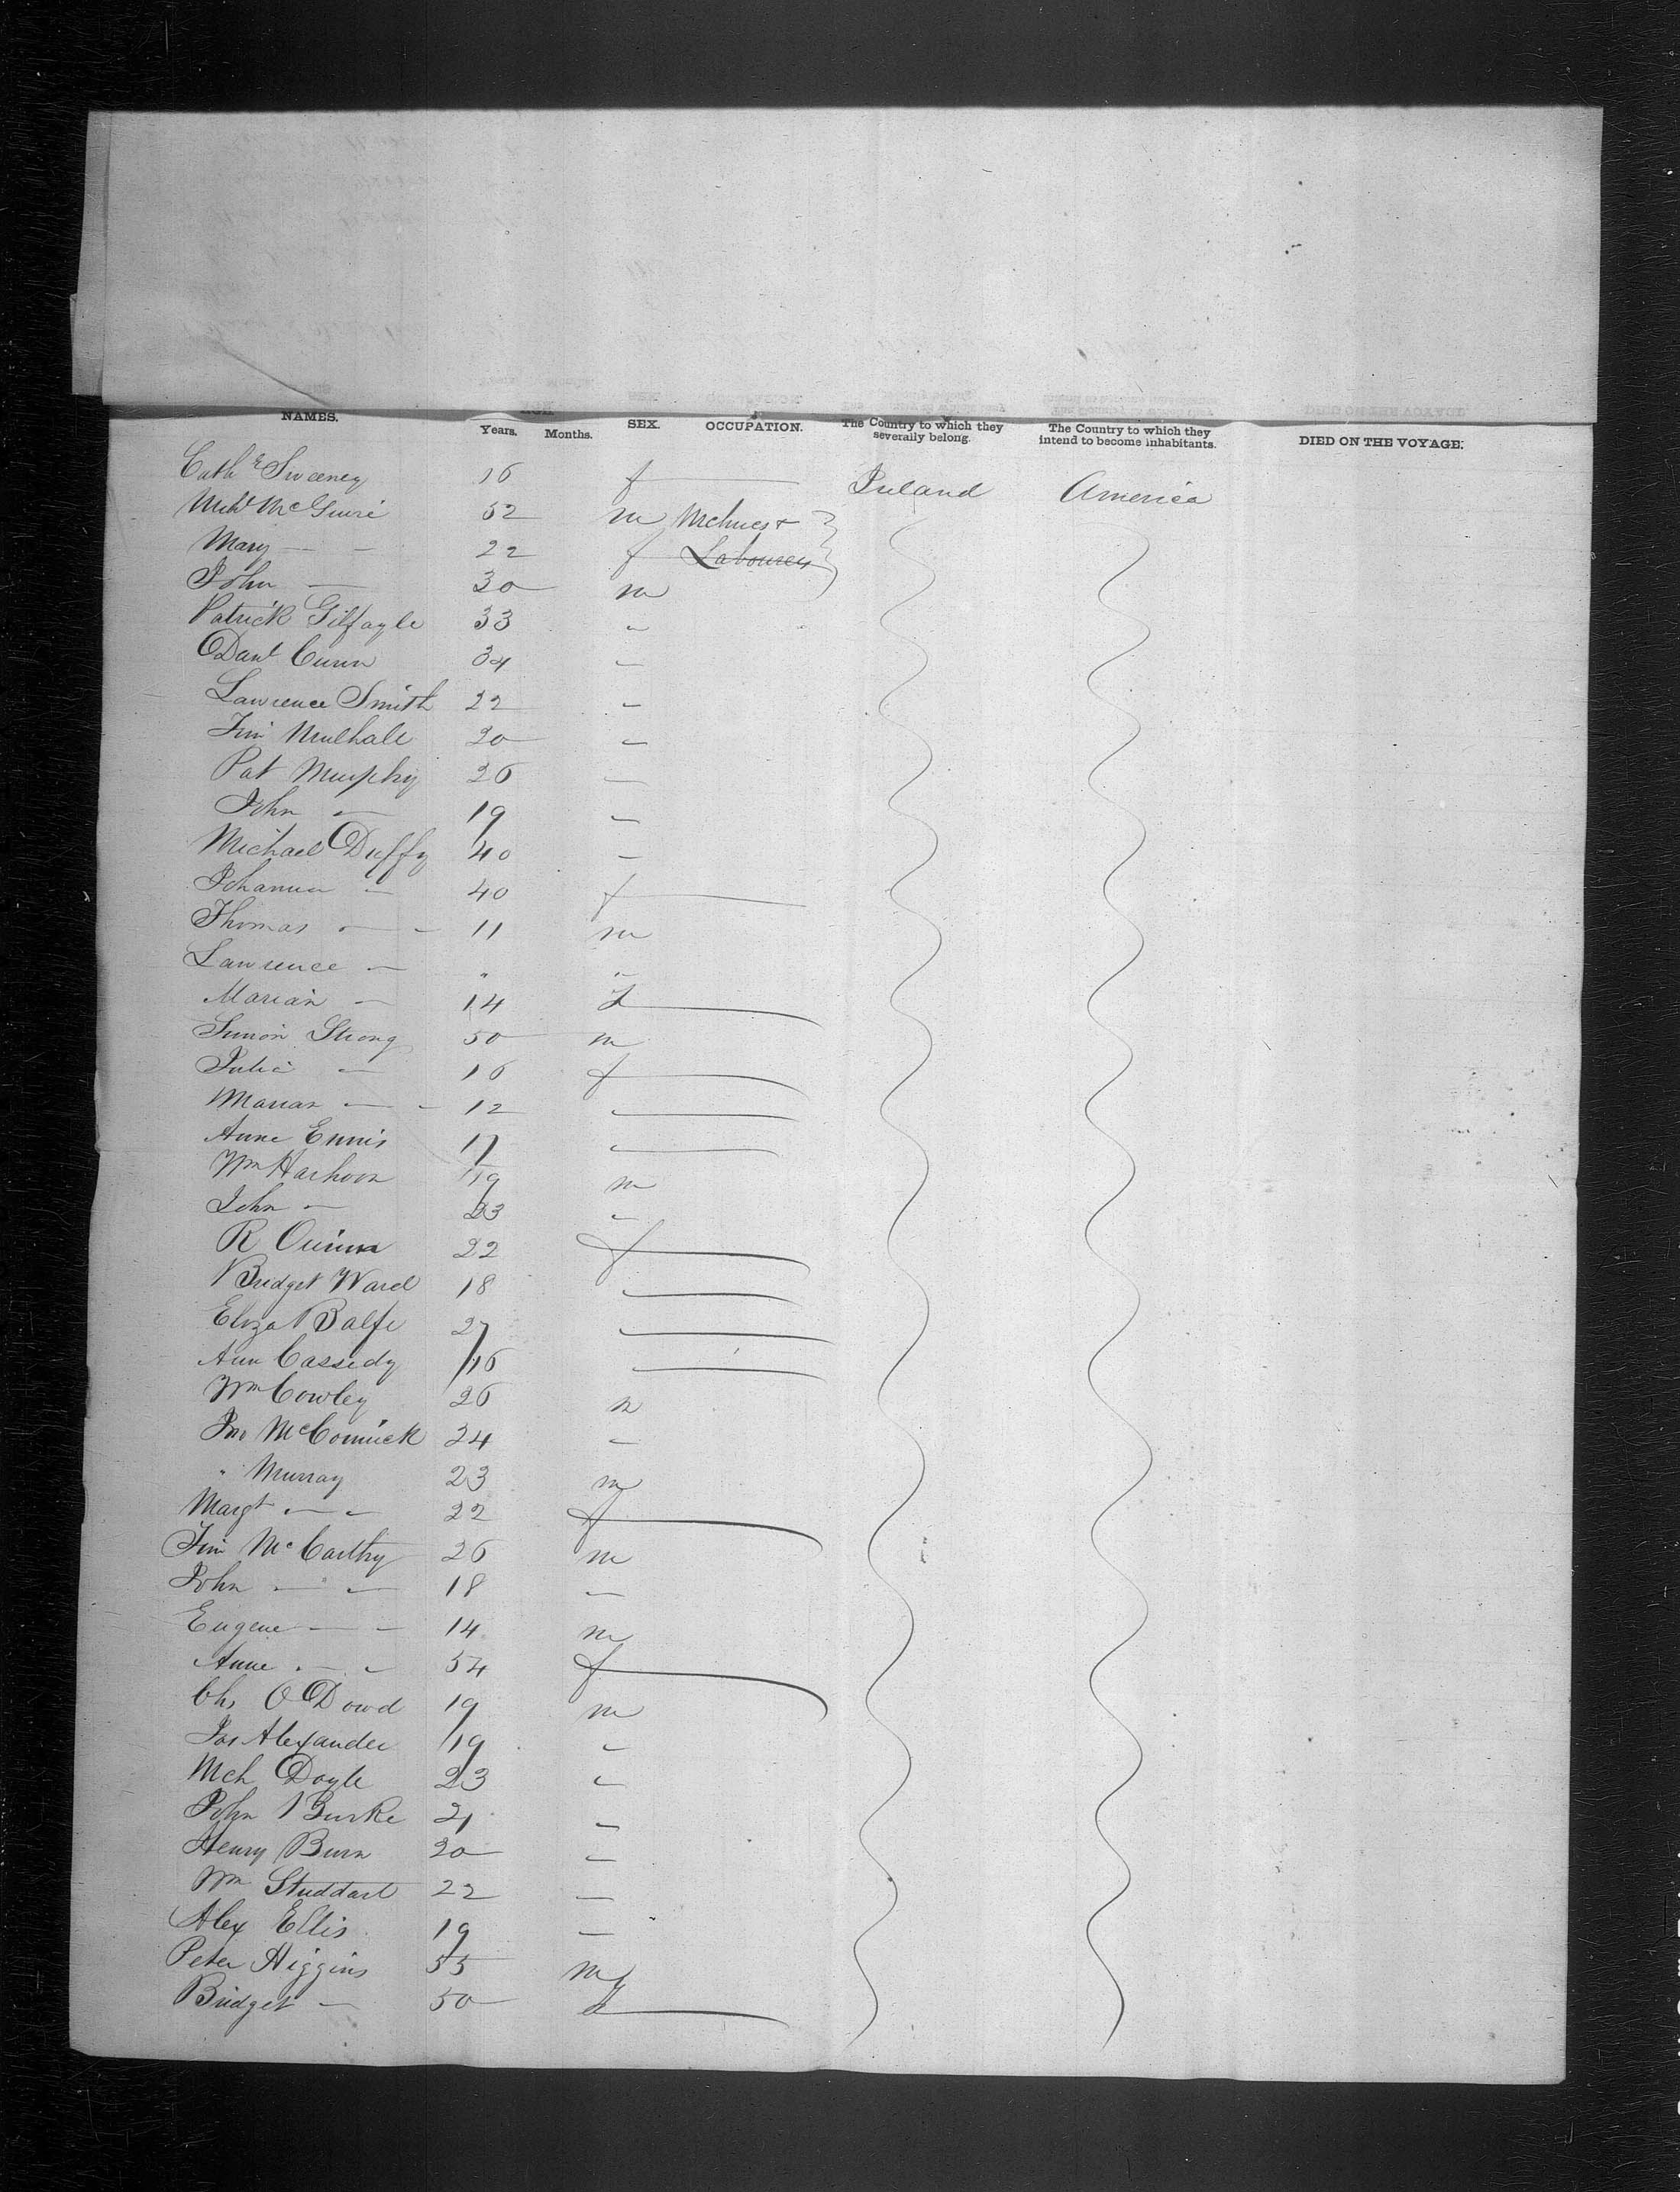 NAMES. AGE. SEX. OCCUPATION. The Country to which they severally belong. The Country to which they intend to become inhabitants. DIED ON THE VOYAGE.
Years. Months.
Cathe Sweeney 16 f — Ireland America
Michl McGuire 52 m Mchncs &
Mary — — 22 f Labourers
John — 30 m
Patrick Gilfoyle 33 "
Danl Curren 34 "
Lawrence Smith 22 "
Jim Mulhall 20 "
Pat Murphy 26 "
John — 19 "
Michael Duffy 40 "
Johanna — 40 f —
Thomas — — 11 m
Lawrence — " "
Marian — 14 f —
Simon Strong 50 m
Julia — 16 f —
Marian — — 12 " —
Anne Ennis 17 " —
Wm Harhoon 19 m
John — 23 "
R Quinn 22 f —
Bridget Ward 18 " —
Eliza Balfe 27 " —
Ann Cassidy 16 " —
Wm Cowley 26 m
Jno McCormick 24 "
" Murray 23 m
Margt — — 22 f —
Jim McCarthy 26 m
John — — 18 "
Eugene — — 14 m
Anne — — 54 f —
Chs O Dowd 19 m
Jas Alexander 19 "
Mch Doyle 23 "
John Burke 21 "
Henry Burn 20 "
Wm Studdart 22 "
Alex Ellis 19 "
Peter Higgins 55 m
Bridget — 50 f —